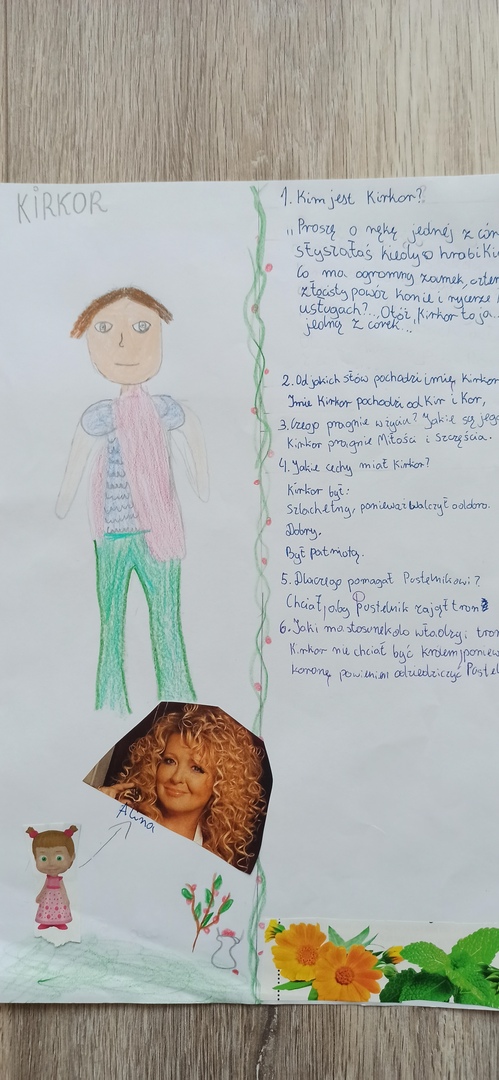 KIRKOR
1. Kim jest Kirkor?
"Proszę o rękę jednej z cór
słyszałaś kiedyś o hrabi Ki
Co ma ogromny zamek, czter
złocisty powóz konie i rycerze
usługach?... Otóż, Kirkor to ja...
jedną z córek...
2. Od jakich słów pochodzi imię Kirkor
Imię Kirkor pochodzi od Kir i Kor,
3. Czego pragnie w życiu? Jakie są jeg
Kirkor pragnie Miłości i Szczęścia.
4. Jakie cechy miał Kirkor?
Kirkor był:
Szlachetny, ponieważ walczył o dobro.
Dobry.
Był patriotą.
5. Dlaczego pomagał Pustelnikowi?
Chciał, aby Pustelnik zajął tron
6. Jaki ma stosunek do władzy i tron
Kirkor nie chciał być królem, poniew
koronę powinien odziedziczyć Pustel
Alina